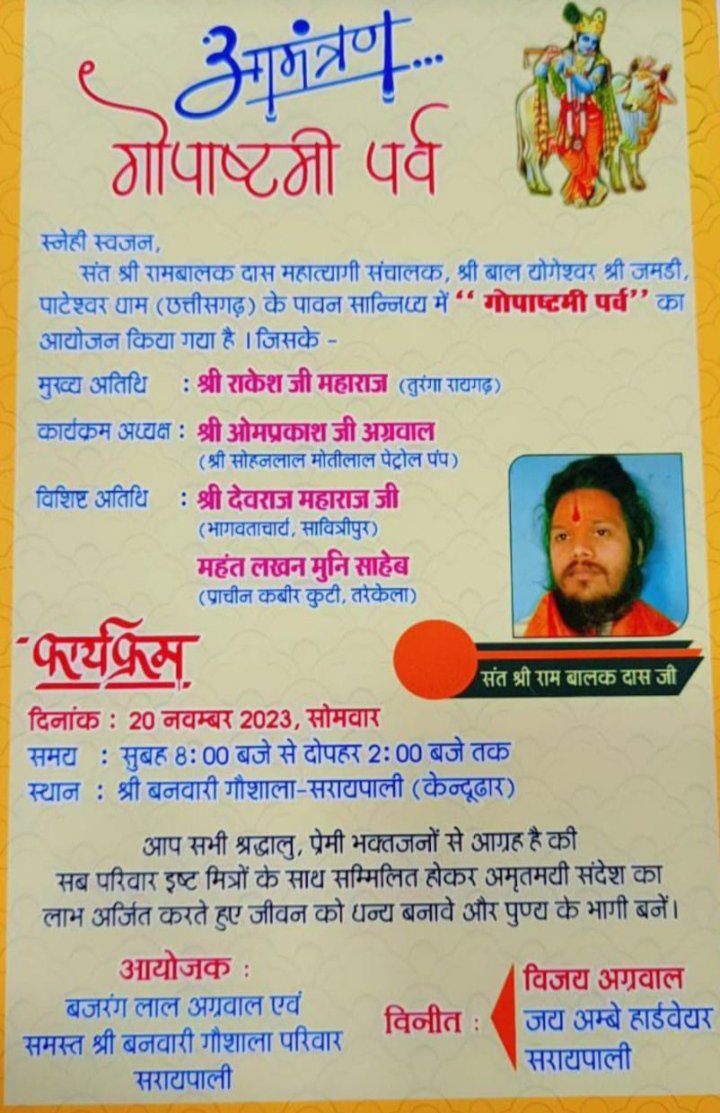 आमंत्रण...
गोपाष्टमी पर्व
स्नेही स्वजन,
संत श्री रामबालक दास महात्यागी संचालक, श्री बाल योगेश्वर श्री जमडी,
पाटेश्वर धाम (छत्तीसगढ़) के पावन सान्निध्य में “ गोपाष्टमी पर्व” का
आयोजन किया गया है । जिसके -
मुख्य अतिथि : श्री राकेश जी महाराज (तुरंगा रायगढ़)
कार्यक्रम अध्यक्ष : श्री ओमप्रकाश जी अग्रवाल
(श्री सोहनलाल मोतीलाल पेट्रोल पंप)
विशिष्ट अतिथि : श्री देवराज महाराज जी
(भागवताचार्य, सावित्रीपुर)
महंत लखन मुनि साहेब
(प्राचीन कबीर कुटी, तरेकेला)
संत श्री राम बालक दास जी
कार्यक्रम
दिनांक : 20 नवम्बर 2023, सोमवार
समय : सुबह 8:00 बजे से दोपहर 2:00 बजे तक
स्थान : श्री बनवारी गौशाला-सरायपाली (केन्दूढार)
आप सभी श्रद्धालु, प्रेमी भक्तजनों से आग्रह है की
सब परिवार इष्ट मित्रों के साथ सम्मिलित होकर अमृतमयी संदेश का
लाभ अर्जित करते हुए जीवन को धन्य बनावे और पुण्य के भागी बनें।
आयोजक :
बजरंग लाल अग्रवाल एवं
समस्त श्री बनवारी गौशाला परिवार
सरायपाली
विनीत :
विजय अग्रवाल
जय अम्बे हार्डवेयर
सरायपाली